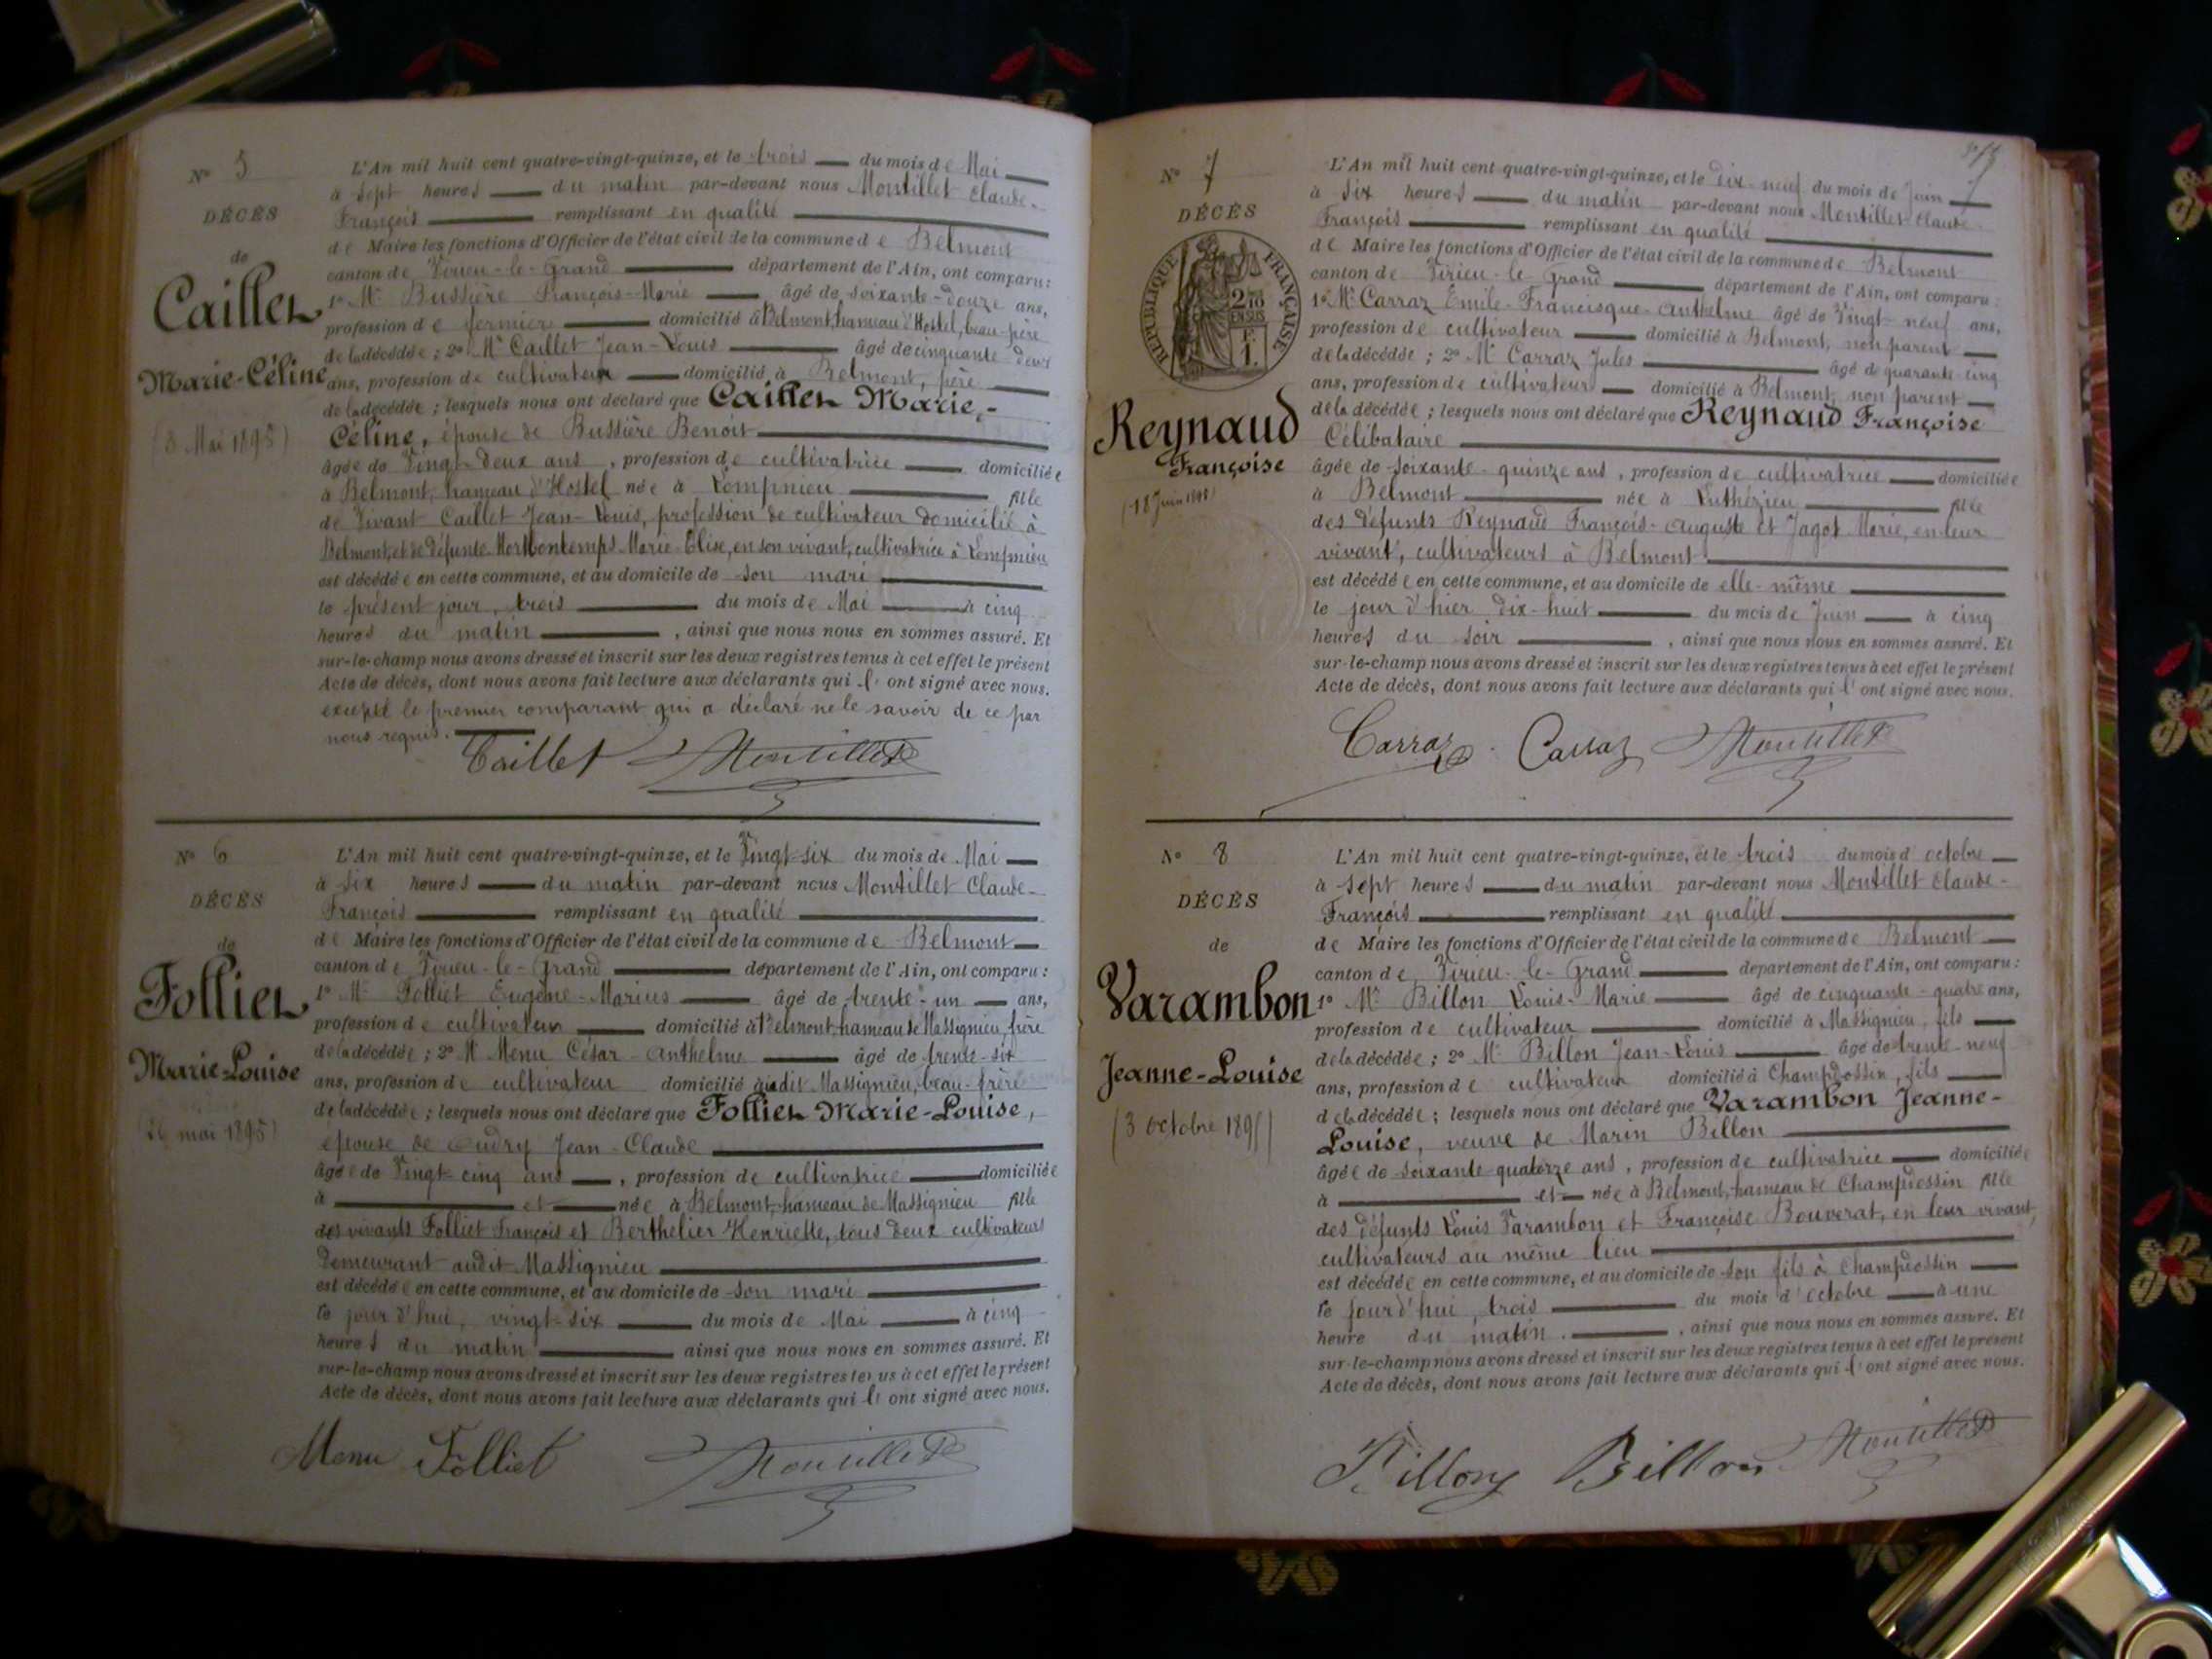 N° 5
DÉCÈS
de
Caillet
Marie-Céline
(3 Mai 1895)
L'An mil huit cent quatre-vingt-quinze, et le trois du mois de Mai
à sept heures du matin par-devant nous Montillet Claude-
François remplissant en qualité
de Maire les fonctions d'Officier de l'état civil de la commune de Belmont
canton de Virieu-le-Grand département de l'Ain, ont comparu :
1° Mr Bussière François-Marie âgé de soixante-douze ans,
profession de fermier domicilié à Belmont, hameau d'Hostel, beau-père
de la décédée ; 2° Mr Caillet Jean-Louis âgé de cinquante-deux
ans, profession de cultivateur domicilié à Belmont, père
de la décédée ; lesquels nous ont déclaré que Caillet Marie-
Céline, épouse de Bussière Benoit
âgée de Vingt-deux ans, profession de cultivatrice domiciliée
à Belmont, hameau d'Hostel née à Lompnieu fille
de Vivant Caillet Jean-Louis, profession de cultivateur domicilié à
Belmont, et de défunte Marie-Elise, en son vivant, cultivatrice à Lompnieu
est décédée en cette commune, et au domicile de son mari
le présent jour, trois du mois de Mai à cinq
heures du matin, ainsi que nous nous en sommes assuré. Et
sur-le-champ nous avons dressé et inscrit sur les deux registres tenus à cet effet le présent
Acte de décès, dont nous avons fait lecture aux déclarants qui l'ont signé avec nous.
excepté le premier comparant qui a déclaré ne le savoir de ce par
nous requis.
Caillet Montillet
N° 6
DÉCÈS
de
Folliet
Marie-Louise
(26 mai 1895)
L'An mil huit cent quatre-vingt-quinze, et le Vingt-six du mois de Mai
à six heures du matin par-devant nous Montillet Claude-
François remplissant en qualité
de Maire les fonctions d'Officier de l'état civil de la commune de Belmont
canton de Virieu-le-Grand département de l'Ain, ont comparu :
1° Mr Folliet Eugène-Marius âgé de trente-un ans,
profession de cultivateur domicilié à Belmont, hameau de Massignieu, frère
de la décédée ; 2° Mr Menu César-Anthelme âgé de trente-six
ans, profession de cultivateur domicilié audit Massignieu, beau-frère
de la décédée ; lesquels nous ont déclaré que Folliet Marie-Louise,
épouse de Cudry Jean-Claude
âgée de Vingt-cinq ans, profession de cultivatrice domiciliée
à et née à Belmont, hameau de Massignieu fille
des vivants Folliet François et Berthelier Henriette, tous deux cultivateurs
demeurant audit Massignieu
est décédée en cette commune, et au domicile de son mari
le jour d'hui, vingt-six du mois de Mai à cinq
heures du matin ainsi que nous nous en sommes assuré. Et
sur-le-champ nous avons dressé et inscrit sur les deux registres tenus à cet effet le présent
Acte de décès, dont nous avons fait lecture aux déclarants qui l'ont signé avec nous.
Menu Folliet Montillet
N° 7
DÉCÈS
RÉPUBLIQUE FRANÇAISE
2/10 EN SUS
F. 1.
Reynaud
Françoise
(18 Juin 1895)
L'An mil huit cent quatre-vingt-quinze, et le dix-neuf du mois de Juin
à six heures du matin par-devant nous Montillet Claude-
François remplissant en qualité
de Maire les fonctions d'Officier de l'état civil de la commune de Belmont
canton de Virieu-le-Grand département de l'Ain, ont comparu :
1° Mr Carraz Emile-Francisque-Anthelme âgé de Vingt-neuf ans,
profession de cultivateur domicilié à Belmont, non parent
de la décédée ; 2° Mr Carraz Jules âgé de quarante-cinq
ans, profession de cultivateur domicilié à Belmont, non parent
de la décédée ; lesquels nous ont déclaré que Reynaud Françoise
Célibataire
âgée de soixante-quinze ans, profession de cultivatrice domiciliée
à Belmont née à Luthézieu fille
des défunts Reynaud François-Auguste et Jagot Marie, en leur
vivant, cultivateurs à Belmont
est décédée en cette commune, et au domicile de elle-même
le jour d'hier dix-huit du mois de Juin à cinq
heures du soir, ainsi que nous nous en sommes assuré. Et
sur-le-champ nous avons dressé et inscrit sur les deux registres tenus à cet effet le présent
Acte de décès, dont nous avons fait lecture aux déclarants qui l'ont signé avec nous.
Carraz Carraz Montillet
N° 8
DÉCÈS
de
Varambon
Jeanne-Louise
(3 octobre 1895)
L'An mil huit cent quatre-vingt-quinze, et le trois du mois d'octobre
à sept heures du matin par-devant nous Montillet Claude-
François remplissant en qualité
de Maire les fonctions d'Officier de l'état civil de la commune de Belmont
canton de Virieu-le-Grand département de l'Ain, ont comparu :
1° Mr Billon Louis-Marie âgé de cinquante-quatre ans,
profession de cultivateur domicilié à Massignieu, fils
de la décédée ; 2° Mr Billon Jean-Louis âgé de trente-neuf
ans, profession de cultivateur domicilié à Champdossin, fils
de la décédée ; lesquels nous ont déclaré que Varambon Jeanne-
Louise, veuve de Marin Billon
âgée de soixante-quatorze ans, profession de cultivatrice domiciliée
à et née à Belmont, hameau de Champdossin fille
des défunts Louis Varambon et Françoise Bouverat, en leur vivant,
cultivateurs au même lieu
est décédée en cette commune, et au domicile de son fils à Champdossin
le jourd'hui, trois du mois d'octobre à une
heure du matin, ainsi que nous nous en sommes assuré. Et
sur-le-champ nous avons dressé et inscrit sur les deux registres tenus à cet effet le présent
Acte de décès, dont nous avons fait lecture aux déclarants qui l'ont signé avec nous.
Billon Billon Montillet